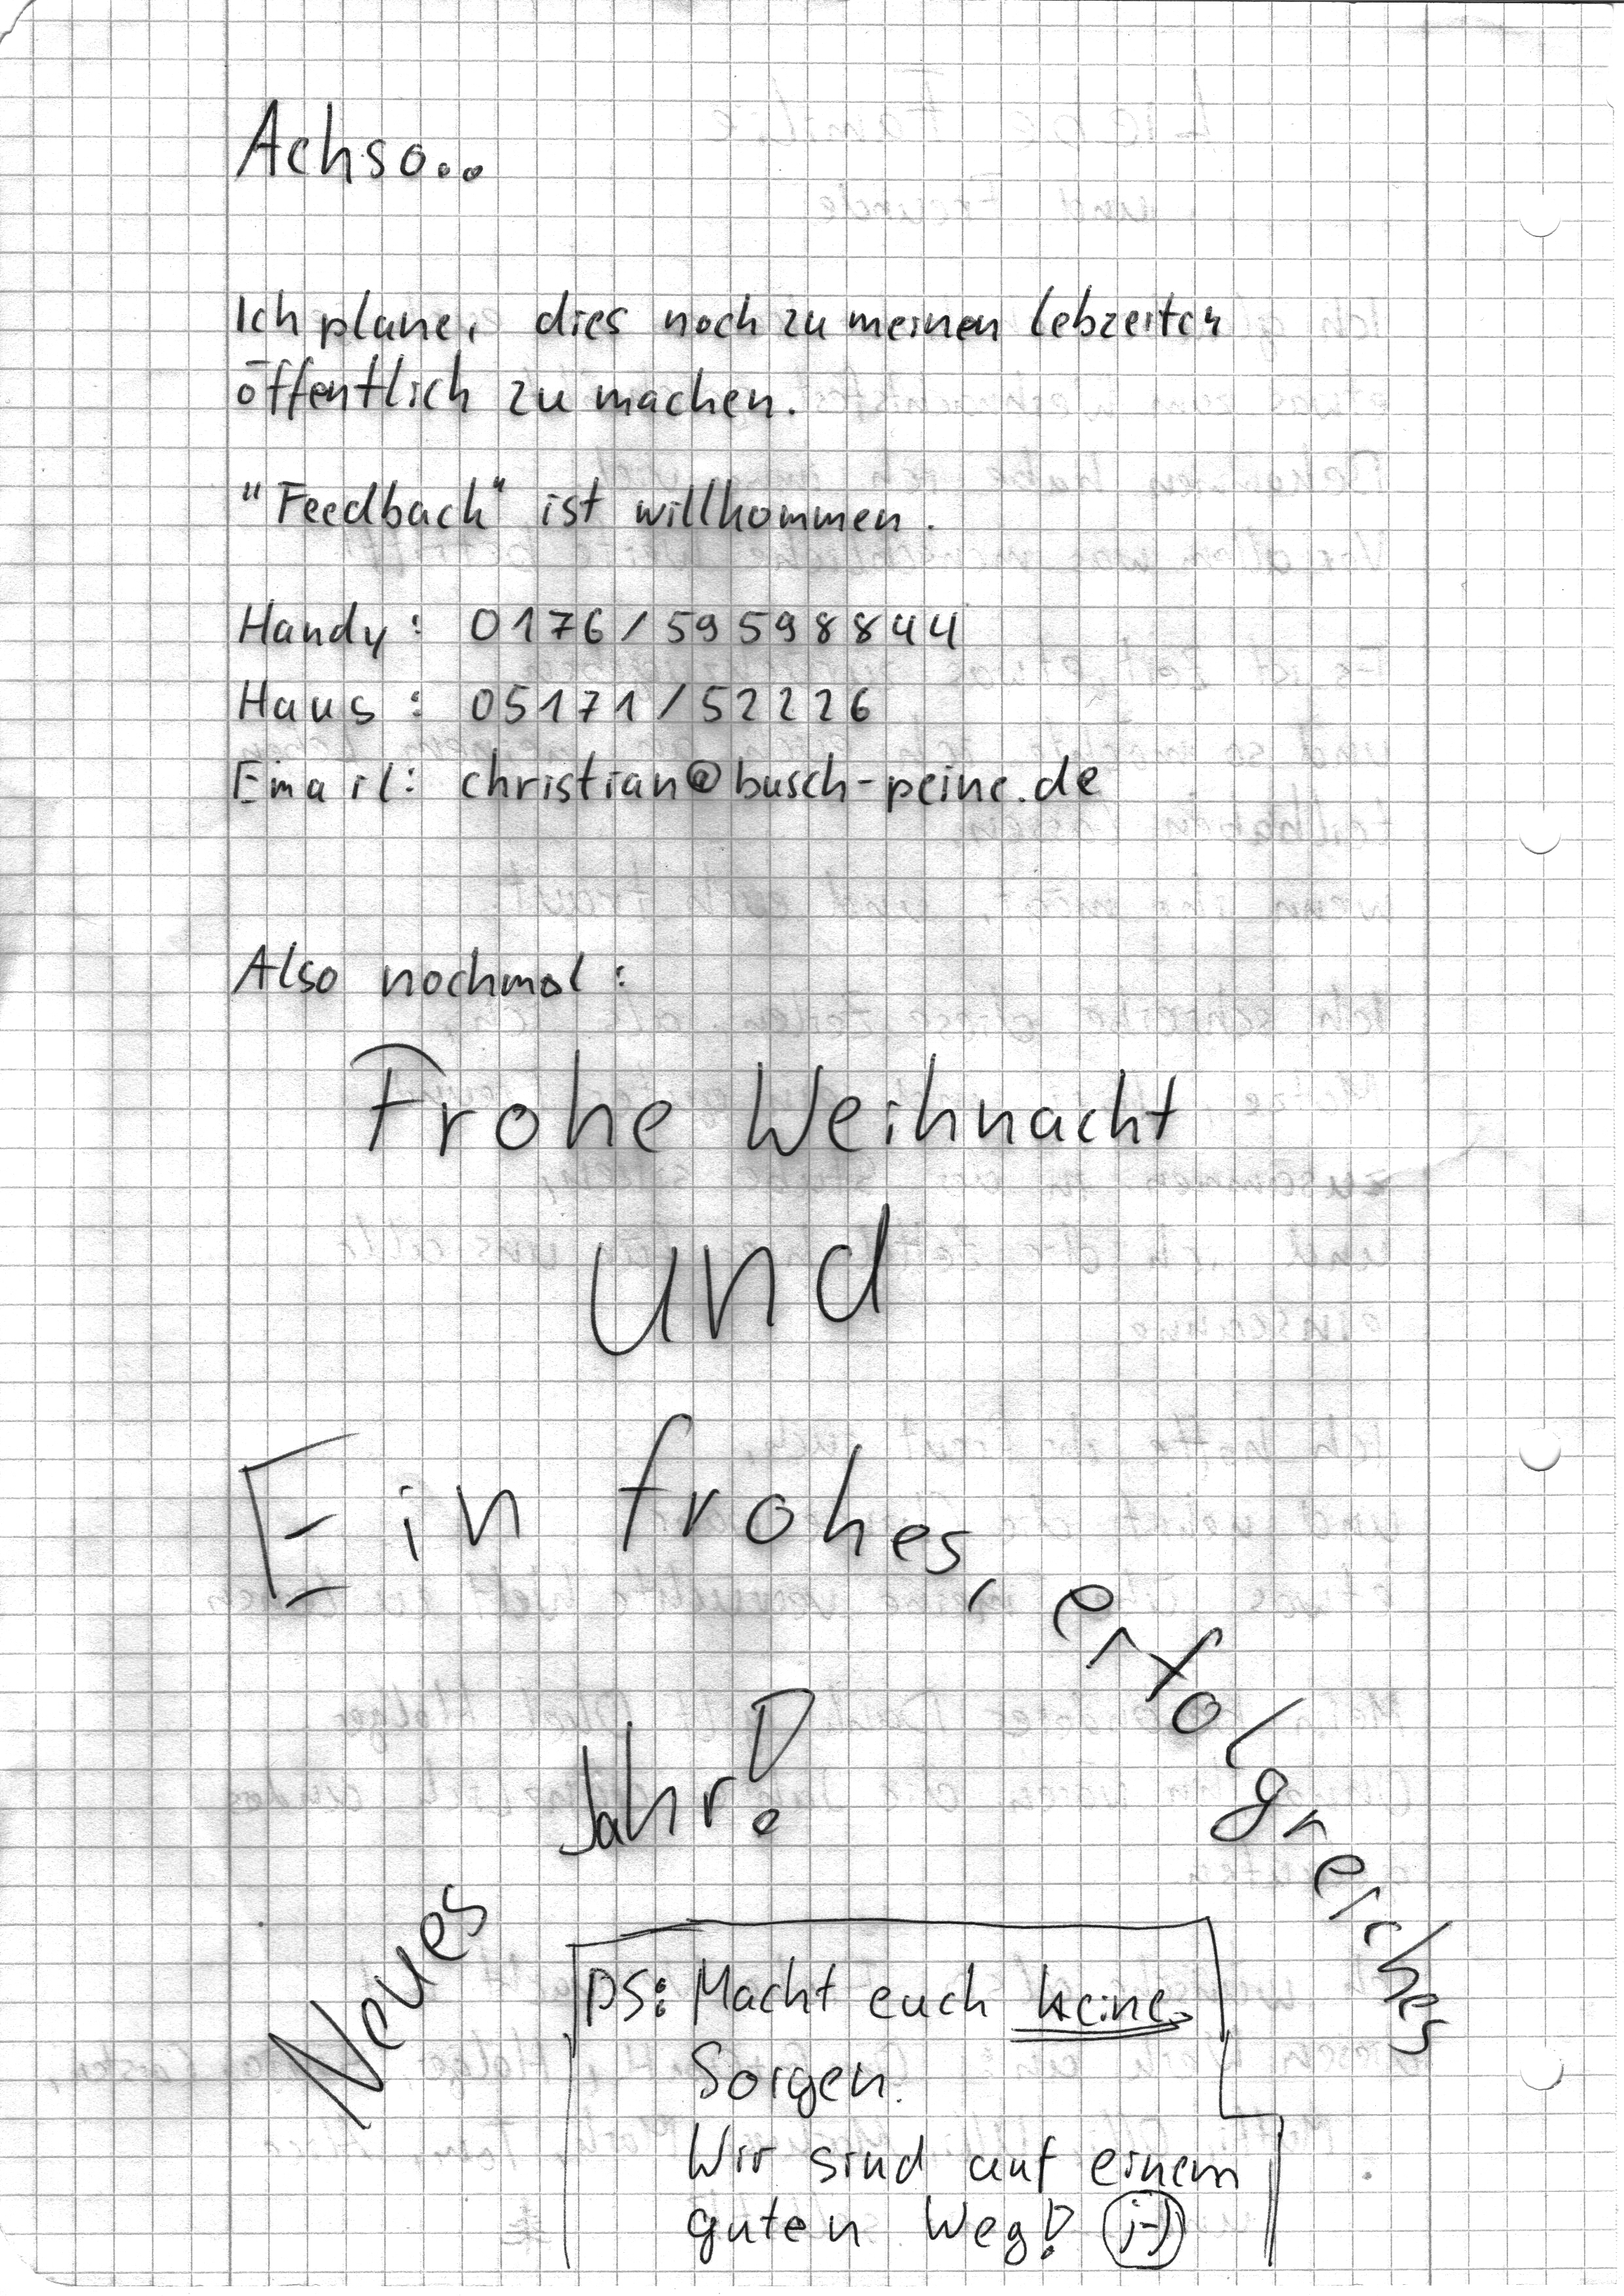 Achso...
Ich plane, dies noch zu meinen Lebzeiten
öffentlich zu machen.
"Feedback" ist willkommen.
Handy: 0176/59598844
Haus: 05171/52226
Email: christian@busch-peine.de
Also nochmal:
Frohe Weihnacht
und
Ein frohes, erfolgreiches
Neues Jahr!
PS: Macht euch keine
Sorgen.
Wir sind auf einem
guten Weg! ;-)